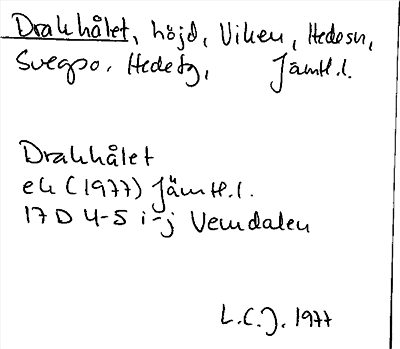 Drakhålet, höjd, Viken, Hedesn,
Svegso. Hedetg, Jämtl.l.
Drakhålet
ek (1977) Jämtl.l.
17 D 4-5 i-j Vemdalen
L.C.J. 1977